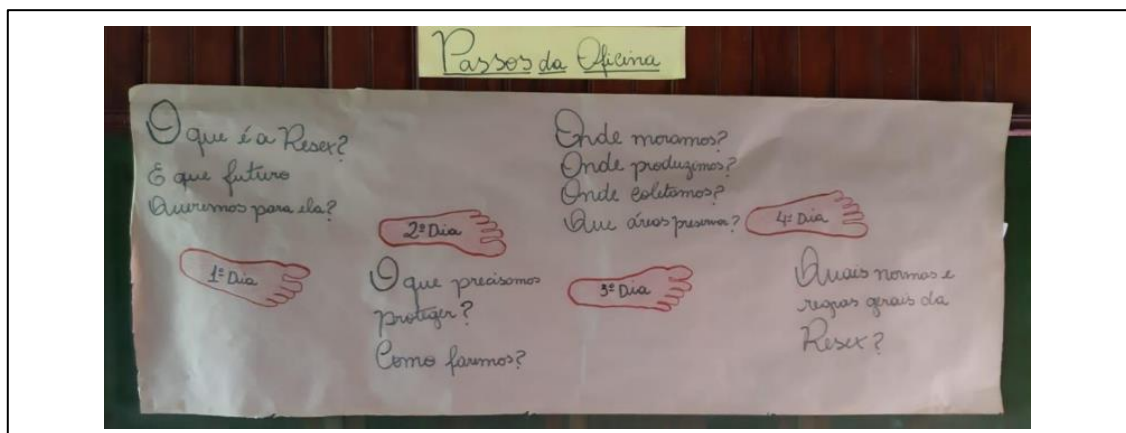 Passos da Oficina
O que é a Resex?
E que futuro
Queremos para ela?
1º Dia
2º Dia
O que precisamos
proteger?
Como faremos?
Onde moramos?
Onde produzimos?
Onde coletamos?
Que áreas preservar?
3º Dia
4º Dia
Quais normas e
regras gerais da
Resex?